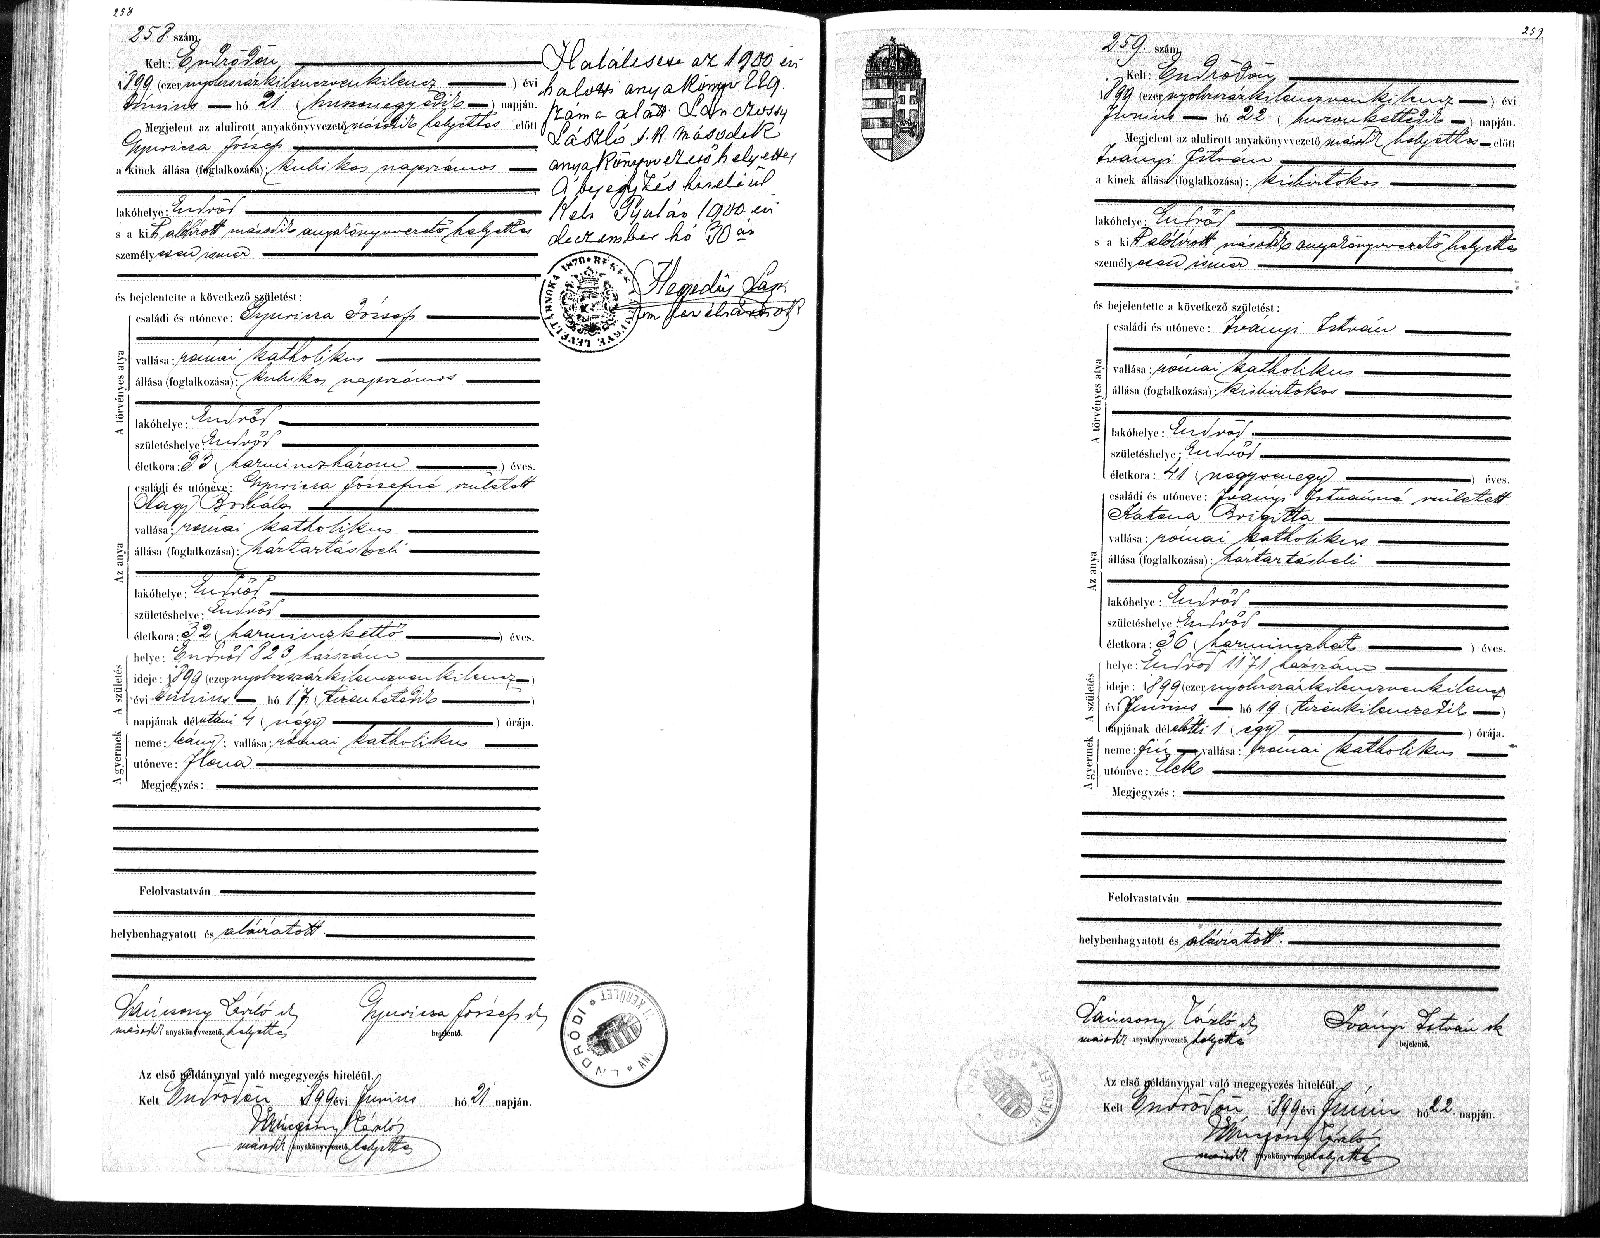 258
258 szám.
Kelt: Endrődön,
1899 (ezernyolczszázkilenczvenkilencz) évi
Június hó 21 (huszonegyedik) napján.
Megjelent az alulirott anyakönyvvezető második helyettes előtt
Gyuricza József
a kinek állása (foglalkozása): kubikos napszámos
lakóhelye: Endrőd
s a kit alólírott második anyakönyvvezető helyettes
személyesen ismer
és bejelentette a következő születést:
A törvényes atya
családi és utóneve: Gyuricza József
vallása: római katholikus
állása (foglalkozása): kubikos napszámos
lakóhelye: Endrőd
születéshelye: Endrőd
életkora: 33 (harminczhárom) éves.
Az anya
családi és utóneve: Gyuricza Józsefné született
Nagy Borbála
vallása: római katholikus
állása (foglalkozása): háztartásbeli
lakóhelye: Endrőd
születéshelye: Endrőd
életkora: 32 (harminczkettő) éves.
A születés
helye: Endrőd 823 házszám
ideje: 1899 (ezernyolczszázkilenczvenkilencz)
évi Június hó 17 (tizenhetedik)
napjának délutáni 4 (négy) órája.
A gyermek
neme: leány; vallása: római katholikus
utóneve: Ilona
Megjegyzés:
Felolvastatván
helybenhagyatott és aláíratott.
második anyakönyvvezető helyettes
Gyuricza József
bejelentő.
Az első példánynyal való megegyezés hiteléül.
Kelt Endrődön 1899 évi Június hó 21 napján.
második anyakönyvvezető helyettes
az 1900 évi
halotti anyakönyv 229.
száma alatt
László s.k. második
anyakönyvvezető helyettes
A bejegyzés hiteléül
Kelt Gyulán 1900 évi
deczember hó 30 án
Hegedüs
259
259 szám.
Kelt: Endrődön
1899 (ezernyolczszázkilenczvenkilencz) évi
Június hó 22 (huszonkettedik) napján.
Megjelent az alulirott anyakönyvvezető második helyettes előtt
Iványi István
a kinek állása (foglalkozása): kisbirtokos
lakóhelye: Endrőd
s a kit alólírott második anyakönyvvezető helyettes
személyesen ismer
és bejelentette a következő születést:
A törvényes atya
családi és utóneve: Iványi István
vallása: római katholikus
állása (foglalkozása): kisbirtokos
lakóhelye: Endrőd
születéshelye: Endrőd
életkora: 41 (negyvenegy) éves.
Az anya
családi és utóneve: Iványi Istvánné született
Katona Brigitta
vallása: római katholikus
állása (foglalkozása): háztartásbeli
lakóhelye: Endrőd
születéshelye: Endrőd
életkora: 36 (harminczhat) éves.
A születés
helye: Endrőd 1171 házszám
ideje: 1899 (ezernyolczszázkilenczvenkilencz
évi Június hó 19 (tizenkilenczedik)
napjának délelőtti 1 (egy) órája.
A gyermek
neme: fiú vallása: római katholikus
utóneve: Elek
Megjegyzés:
Felolvastatván
helybenhagyatott és aláíratott.
második anyakönyvvezető helyettes
Iványi István sk
bejelentő.
Az első példánynyal való megegyezés hiteléül.
Kelt Endrődön 1899 évi Június hó 22 napján.
második anyakönyvvezető helyettes